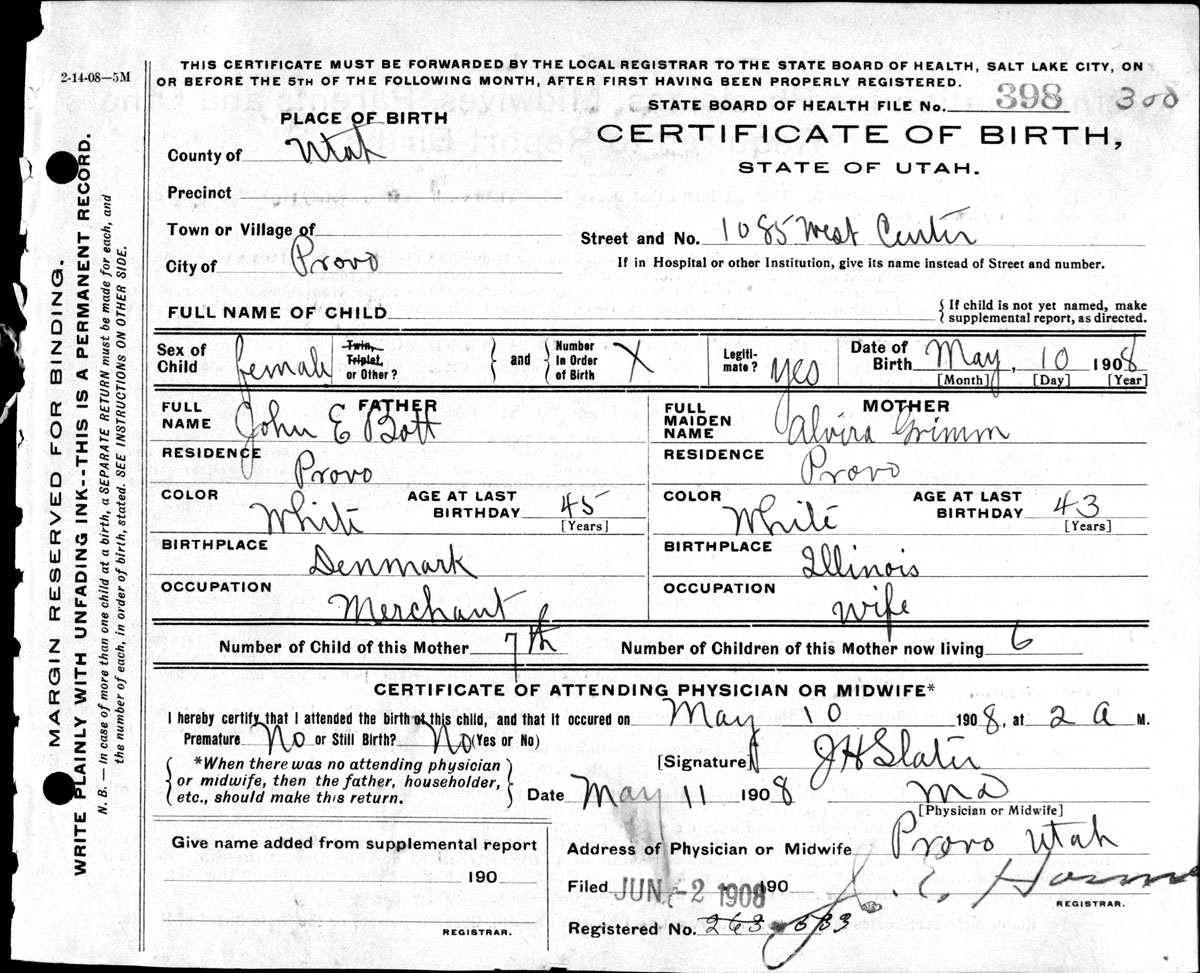 2-14-08—5M
THIS CERTIFICATE MUST BE FORWARDED BY THE LOCAL REGISTRAR TO THE STATE BOARD OF HEALTH, SALT LAKE CITY, ON
OR BEFORE THE 5TH OF THE FOLLOWING MONTH, AFTER FIRST HAVING BEEN PROPERLY REGISTERED.
STATE BOARD OF HEALTH FILE No. 398 300
PLACE OF BIRTH
CERTIFICATE OF BIRTH,
STATE OF UTAH.
County of Utah
Precinct
Town or Village of
Street and No. 1085 West Center
City of Provo
If in Hospital or other Institution, give its name instead of Street and number.
FULL NAME OF CHILD
{ If child is not yet named, make
supplemental report, as directed.
Sex of Child female
Twin, Triplet, or Other? } and { Number In Order of Birth X
Legiti-mate? yes
Date of Birth May, 10 1908
[Month] [Day] [Year]
FATHER
FULL NAME John E Bott
MOTHER
FULL MAIDEN NAME Alvira Grimm
RESIDENCE Provo
RESIDENCE Provo
COLOR White AGE AT LAST BIRTHDAY 45 [Years]
COLOR White AGE AT LAST BIRTHDAY 43 [Years]
BIRTHPLACE Denmark
BIRTHPLACE Illinois
OCCUPATION Merchant
OCCUPATION Wife
Number of Child of this Mother 7th Number of Children of this Mother now living 6
CERTIFICATE OF ATTENDING PHYSICIAN OR MIDWIFE*
I hereby certify that I attended the birth of this child, and that it occured on May 10 1908, at 2 A M.
Premature No or Still Birth? No (Yes or No)
*When there was no attending physician
or midwife, then the father, householder,
etc., should make this return.
[Signature] J H Slater
Date May 11 1908 MD
[Physician or Midwife]
Give name added from supplemental report
190
REGISTRAR.
Address of Physician or Midwife Provo Utah
Filed JUN -2 1908 190
REGISTRAR.
Registered No. 263
MARGIN RESERVED FOR BINDING.
WRITE PLAINLY WITH UNFADING INK--THIS IS A PERMANENT RECORD.
N. B.—In case of more than one child at a birth, a SEPARATE RETURN must be made for each, and
the number of each, in order of birth, stated. SEE INSTRUCTIONS ON OTHER SIDE.